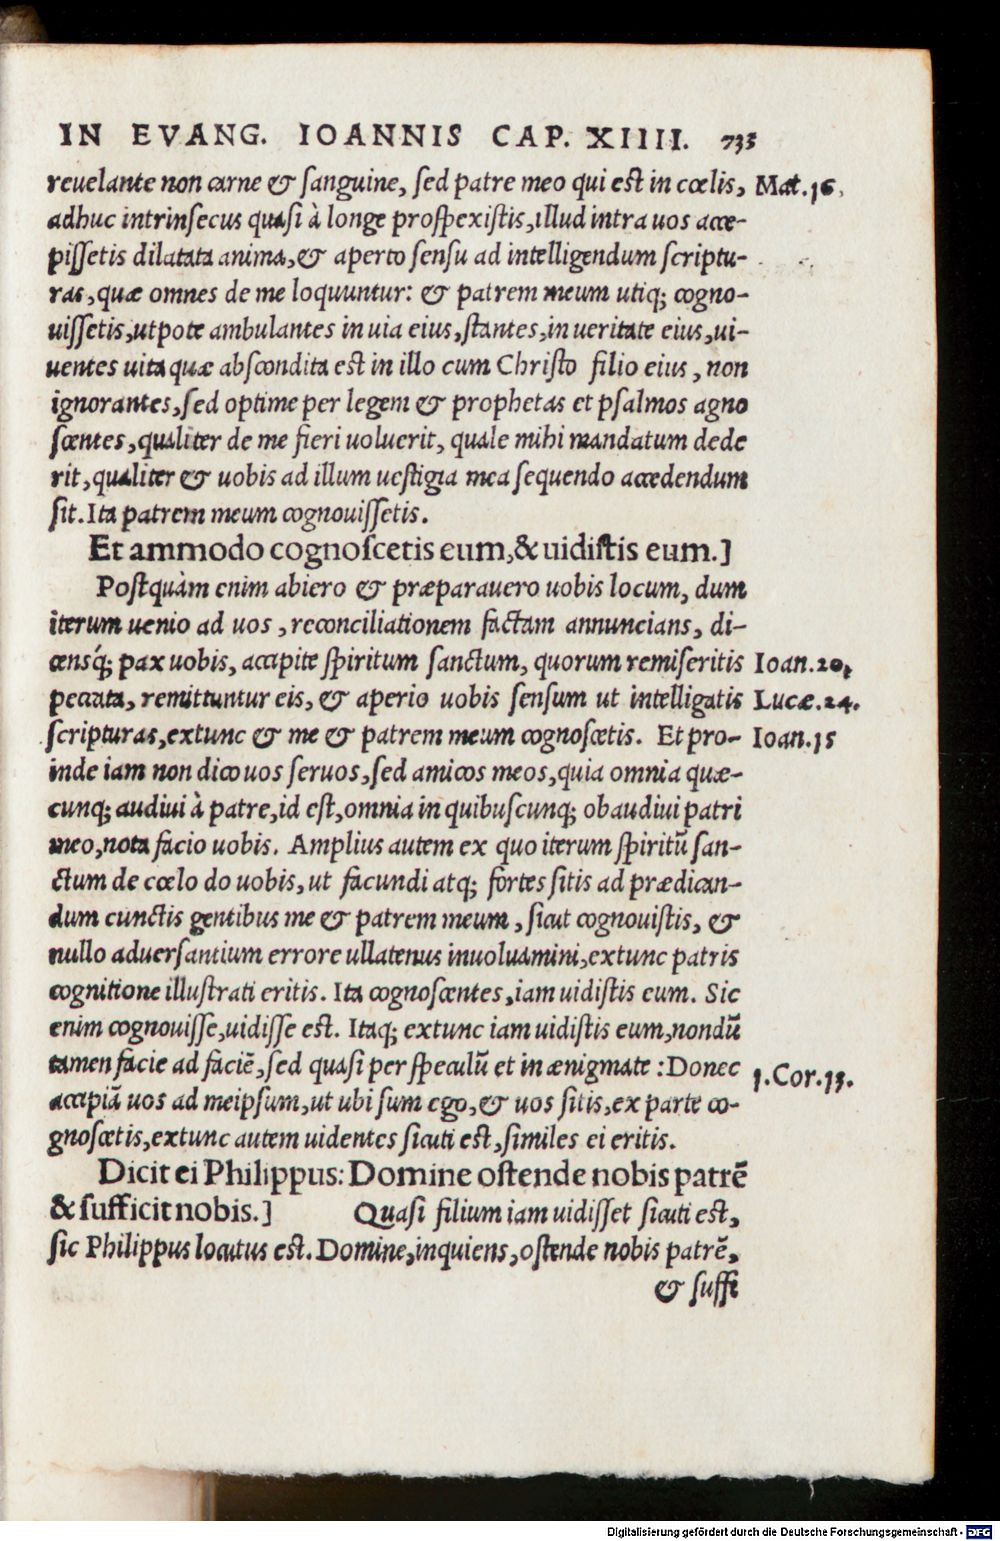 IN EVANG. IOANNIS CAP. XIIII. 735
reuelante non carne & sanguine, sed patre meo qui est in cœlis, Mat.16.
adhuc intrinsecus quasi à longe prospexistis, illud intra uos acce-
pissetis dilatata anima, & aperto sensu ad intelligendum scriptu-
ras, quæ omnes de me loquuntur: & patrem meum utiq; cogno-
uissetis, utpote ambulantes in uia eius, stantes, in ueritate eius, ui-
uentes uita quæ abscondita est in illo cum Christo filio eius, non
ignorantes, sed optime per legem & prophetas et psalmos agno
scentes, qualiter de me fieri uoluerit, quale mihi mandatum dede
rit, qualiter & uobis ad illum uestigia mea sequendo accedendum
sit. Ita patrem meum cognouissetis.
Et ammodo cognoscetis eum, & uidistis eum.]
Postquàm enim abiero & præparauero uobis locum, dum
iterum uenio ad uos, reconciliationem factam annuncians, di-
censq́; pax uobis, accipite spiritum sanctum, quorum remiseritis Ioan.20,
peccata, remittuntur eis, & aperio uobis sensum ut intelligatis Lucæ.24.
scripturas, extunc & me & patrem meum cognoscetis. Et pro- Ioan.15
inde iam non dico uos seruos, sed amicos meos, quia omnia quæ-
cunq; audiui à patre, id est, omnia in quibuscunq; obaudiui patri
meo, nota facio uobis. Amplius autem ex quo iterum spiritū san-
ctum de cœlo do uobis, ut facundi atq; fortes sitis ad prædican-
dum cunctis gentibus me & patrem meum, sicut cognouistis, &
nullo aduersantium errore ullatenus inuoluamini, extunc patris
cognitione illustrati eritis. Ita cognoscentes, iam uidistis eum. Sic
enim cognouisse, uidisse est. Itaq; extunc iam uidistis eum, nondū
tamen facie ad faciē, sed quasi per speculū et in ænigmate: Donec 1.Cor.13.
accipiā uos ad meipsum, ut ubi sum ego, & uos sitis, ex parte co-
gnoscetis, extunc autem uidentes sicuti est, similes ei eritis.
Dicit ei Philippus: Domine ostende nobis patrē
& sufficit nobis.] Quasi filium iam uidisset sicuti est,
sic Philippus locutus est. Domine, inquiens, ostende nobis patrē,
& suffi
Digitalisierung gefördert durch die Deutsche Forschungsgemeinschaft - DFG